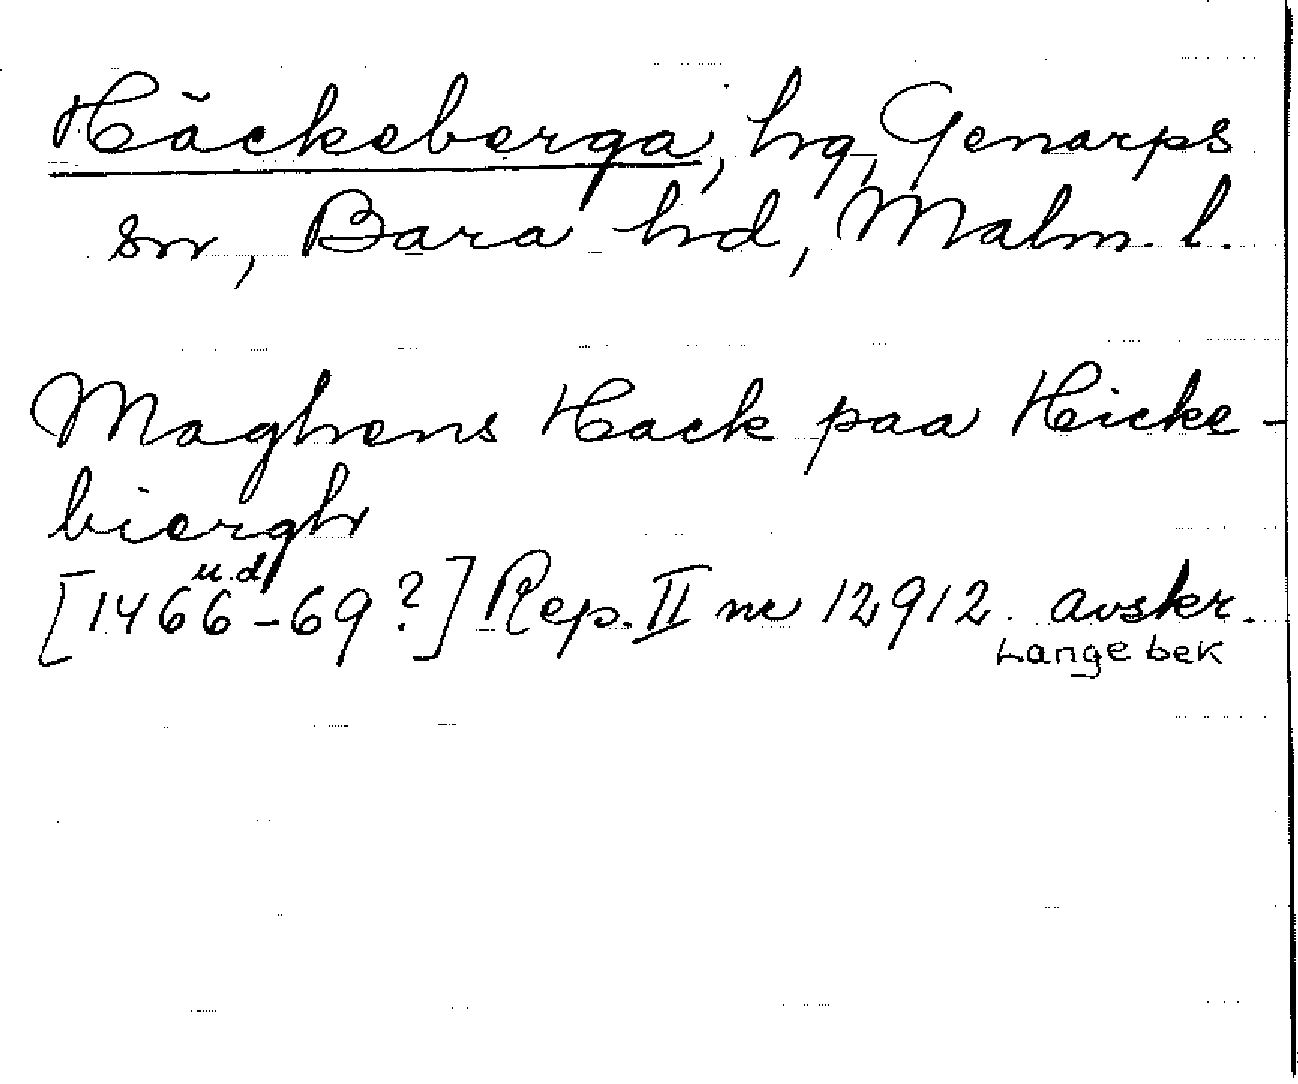 Häckeberga, hg, Genarps
sn, Bara hd, Malm. l.
Maghens Hack paa Hicke-
biergh
u.d.
[1466-69?] Rep. II nr 12912. avskr.
Langebek